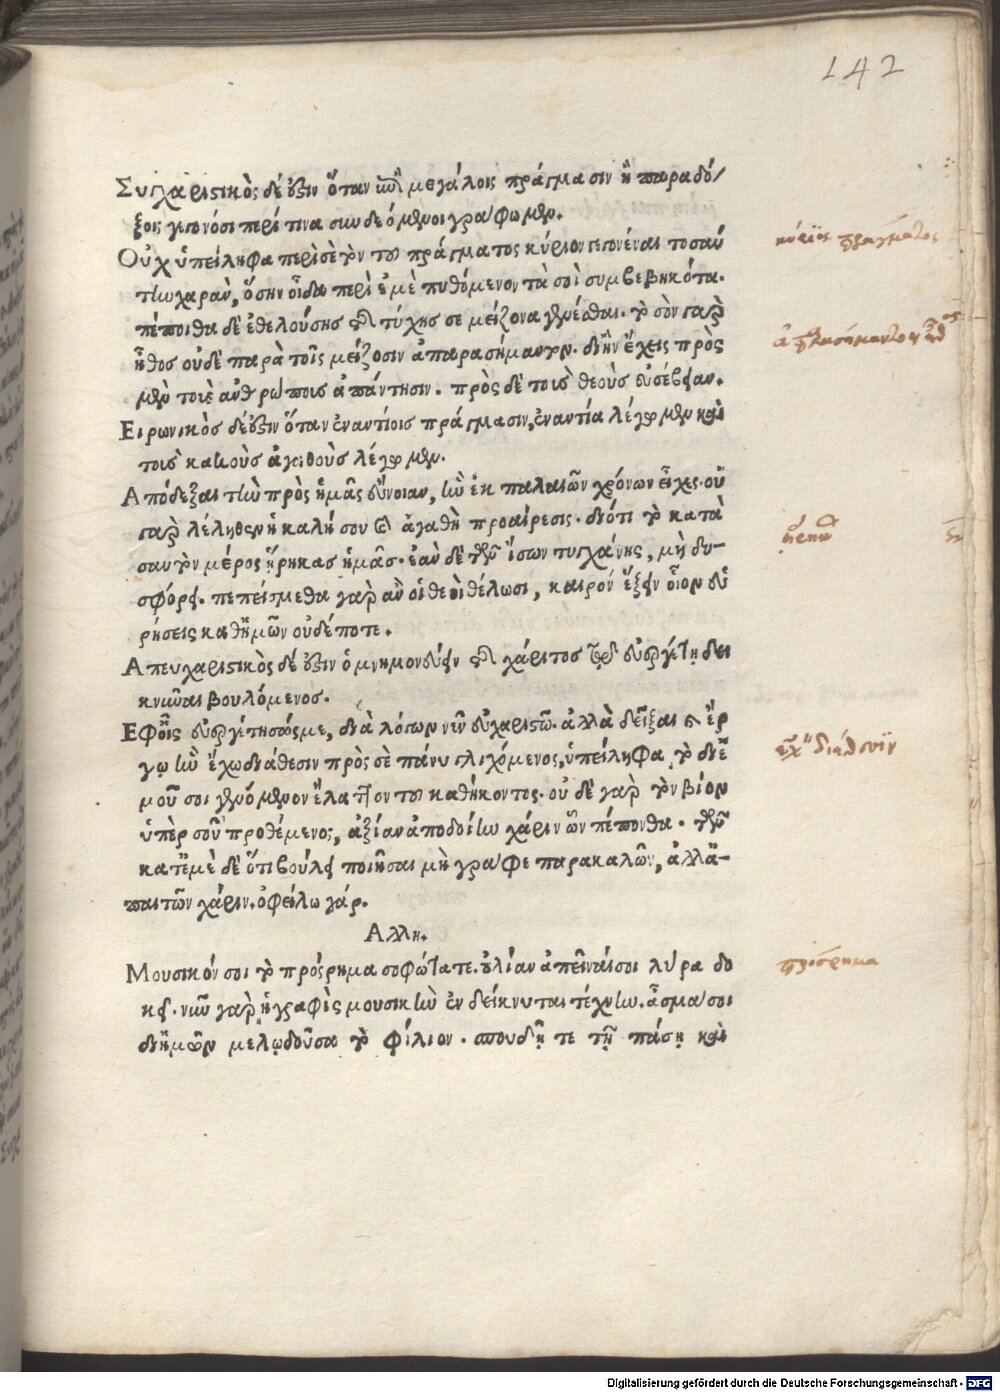 142
Συγχαριστικὸς δέ ἐστιν ὅταν ἐπὶ μεγάλοις πράγμασιν ἢ παραδό/
ξοις γεγονόσι περί τινα συνδεόμενοι γράφωμεν.
Οὐχ ὑπείληφα περὶ σὲ τὸν τοῦ πράγματος κύριον γεγονέναι τοσαύ
την χαρὰν, ὅσην οἶδα περὶ ἐμὲ πυθόμενον τὰ σοὶ συμβεβηκότα.
πέποιθα δὲ ἐθελούσης τῆς τύχης σε μείζονα γενέσθαι. τὸ σὸν γὰρ
ἦθος οὐδὲ παρὰ τοῖς μείζοσιν ἀπαρασήμαντον. δι' ἣν ἔχεις πρὸς
μὲν τοὺς ἀνθρώπους ἀπάντησιν. πρὸς δὲ τοὺς θεοὺς εὐσέβειαν.
Ειρωνικὸς δέ ἐστιν ὅταν ἐναντίοις πράγμασιν, ἐναντία λέγωμεν καὶ
τοὺς κακοὺς ἀγαθοὺς λέγωμεν.
Απόδεξαι τὴν πρὸς ἡμᾶς εὔνοιαν, ἣν ἐκ παλαιῶν χρόνων εἶχες. οὐ
γὰρ λέληθεν ἡ καλή σου καὶ ἀγαθὴ προαίρεσις. διότι τὸ κατὰ
σαυτὸν μέρος ᾔρηκας ἡμᾶς. ἐὰν δὲ τῶν ἴσων τυγχάνῃς, μὴ δυ-
σφόρει. πεπείσμεθα γὰρ ἂν οἱ θεοὶ θέλωσι, καιρὸν ἕξειν οἷον εὑ
ρήσεις καθ' ἡμῶν οὐδέποτε.
Απευχαριστικὸς δέ ἐστιν ὁ μνημονεύειν τῆς χάριτος τῷ εὐεργέτῃ δει
κνῦναι βουλόμενος.
Εφ' οἷς εὐεργέτησάς με, διὰ λόγων νῦν εὐχαριστῶ. ἀλλὰ δεῖξαι τὸ ἔρ
γῳ ἣν ἔχω διάθεσιν πρὸς σὲ πάνυ γλιχόμενος, ὑπείληφα τὸ δι' ἐ
μοῦ σοι γενόμενον ἔλαττον τοῦ καθήκοντος. οὐδὲ γὰρ τὸν βίον
ὑπὲρ σοῦ προθέμενος, ἀξίαν ἀποδοίην χάριν ὧν πέπονθα. τῶν
κατ' ἐμὲ δὲ ὅτι βούλει ποιῆσαι μὴ γράφε παρακαλῶν, ἀλλ' ἀ-
παιτῶν χάριν. ὀφείλω γάρ.
Αλλη.
Μουσικόν σοι τὸ πρόσρημα σοφώτατε. εὖ λίαν ἀπεῖναί σοι λύρα δο
κεῖ. νῦν γὰρ ἡ γραφὶς μουσικὴν ἐνδείκνυται τέχνην. ᾆσμα σοι
δι' ἡμῶν μελῳδοῦσα τὸ φίλιον. σπουδῇ τε τῇ πάσῃ καὶ
πρόσρημα
Digitalisierung gefördert durch die Deutsche Forschungsgemeinschaft - DFG